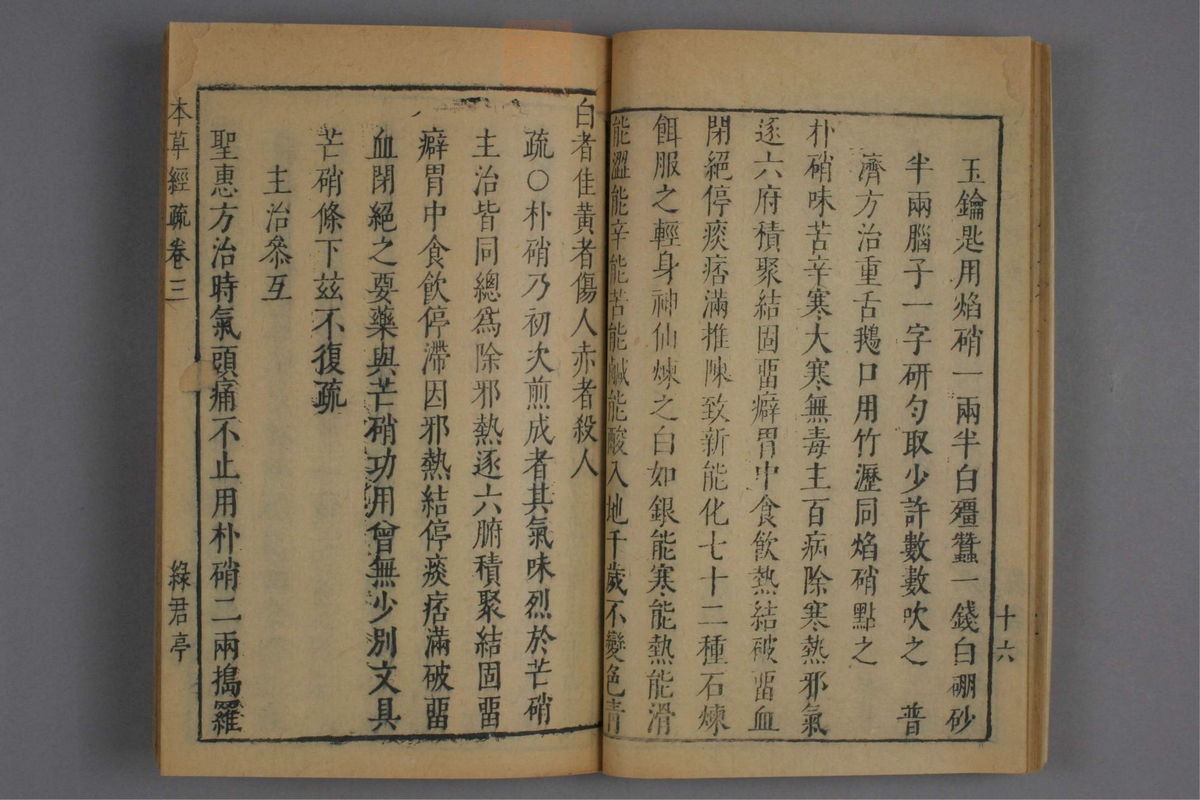 十六
玉鑰匙用焰硝一兩半白殭蠶一錢白硼砂
半兩腦子一字研勻取少許數數吹之　普
濟方治重舌鵝口用竹瀝同焰硝點之
朴硝味苦辛寒大寒無毒主百病除寒熱邪氣
逐六府積聚結固畱癖胃中食飲熱結破畱血
閉絕停痰痞滿推陳致新能化七十二種石煉
餌服之輕身神仙煉之白如銀能寒能熱能滑
能澀能辛能苦能鹹能酸入地千歲不變色青
白者佳黃者傷人赤者殺人
疏○朴硝乃初次煎成者其氣味烈於芒硝
主治皆同總爲除邪熱逐六腑積聚結固畱
癖胃中食飲停滯因邪熱結停痰痞滿破畱
血閉絕之要藥與芒硝功用曾無少別文具
芒硝條下玆不復疏
主治叅互
聖惠方治時氣頭痛不止用朴硝二兩搗羅
本草經疏卷三
綠君亭